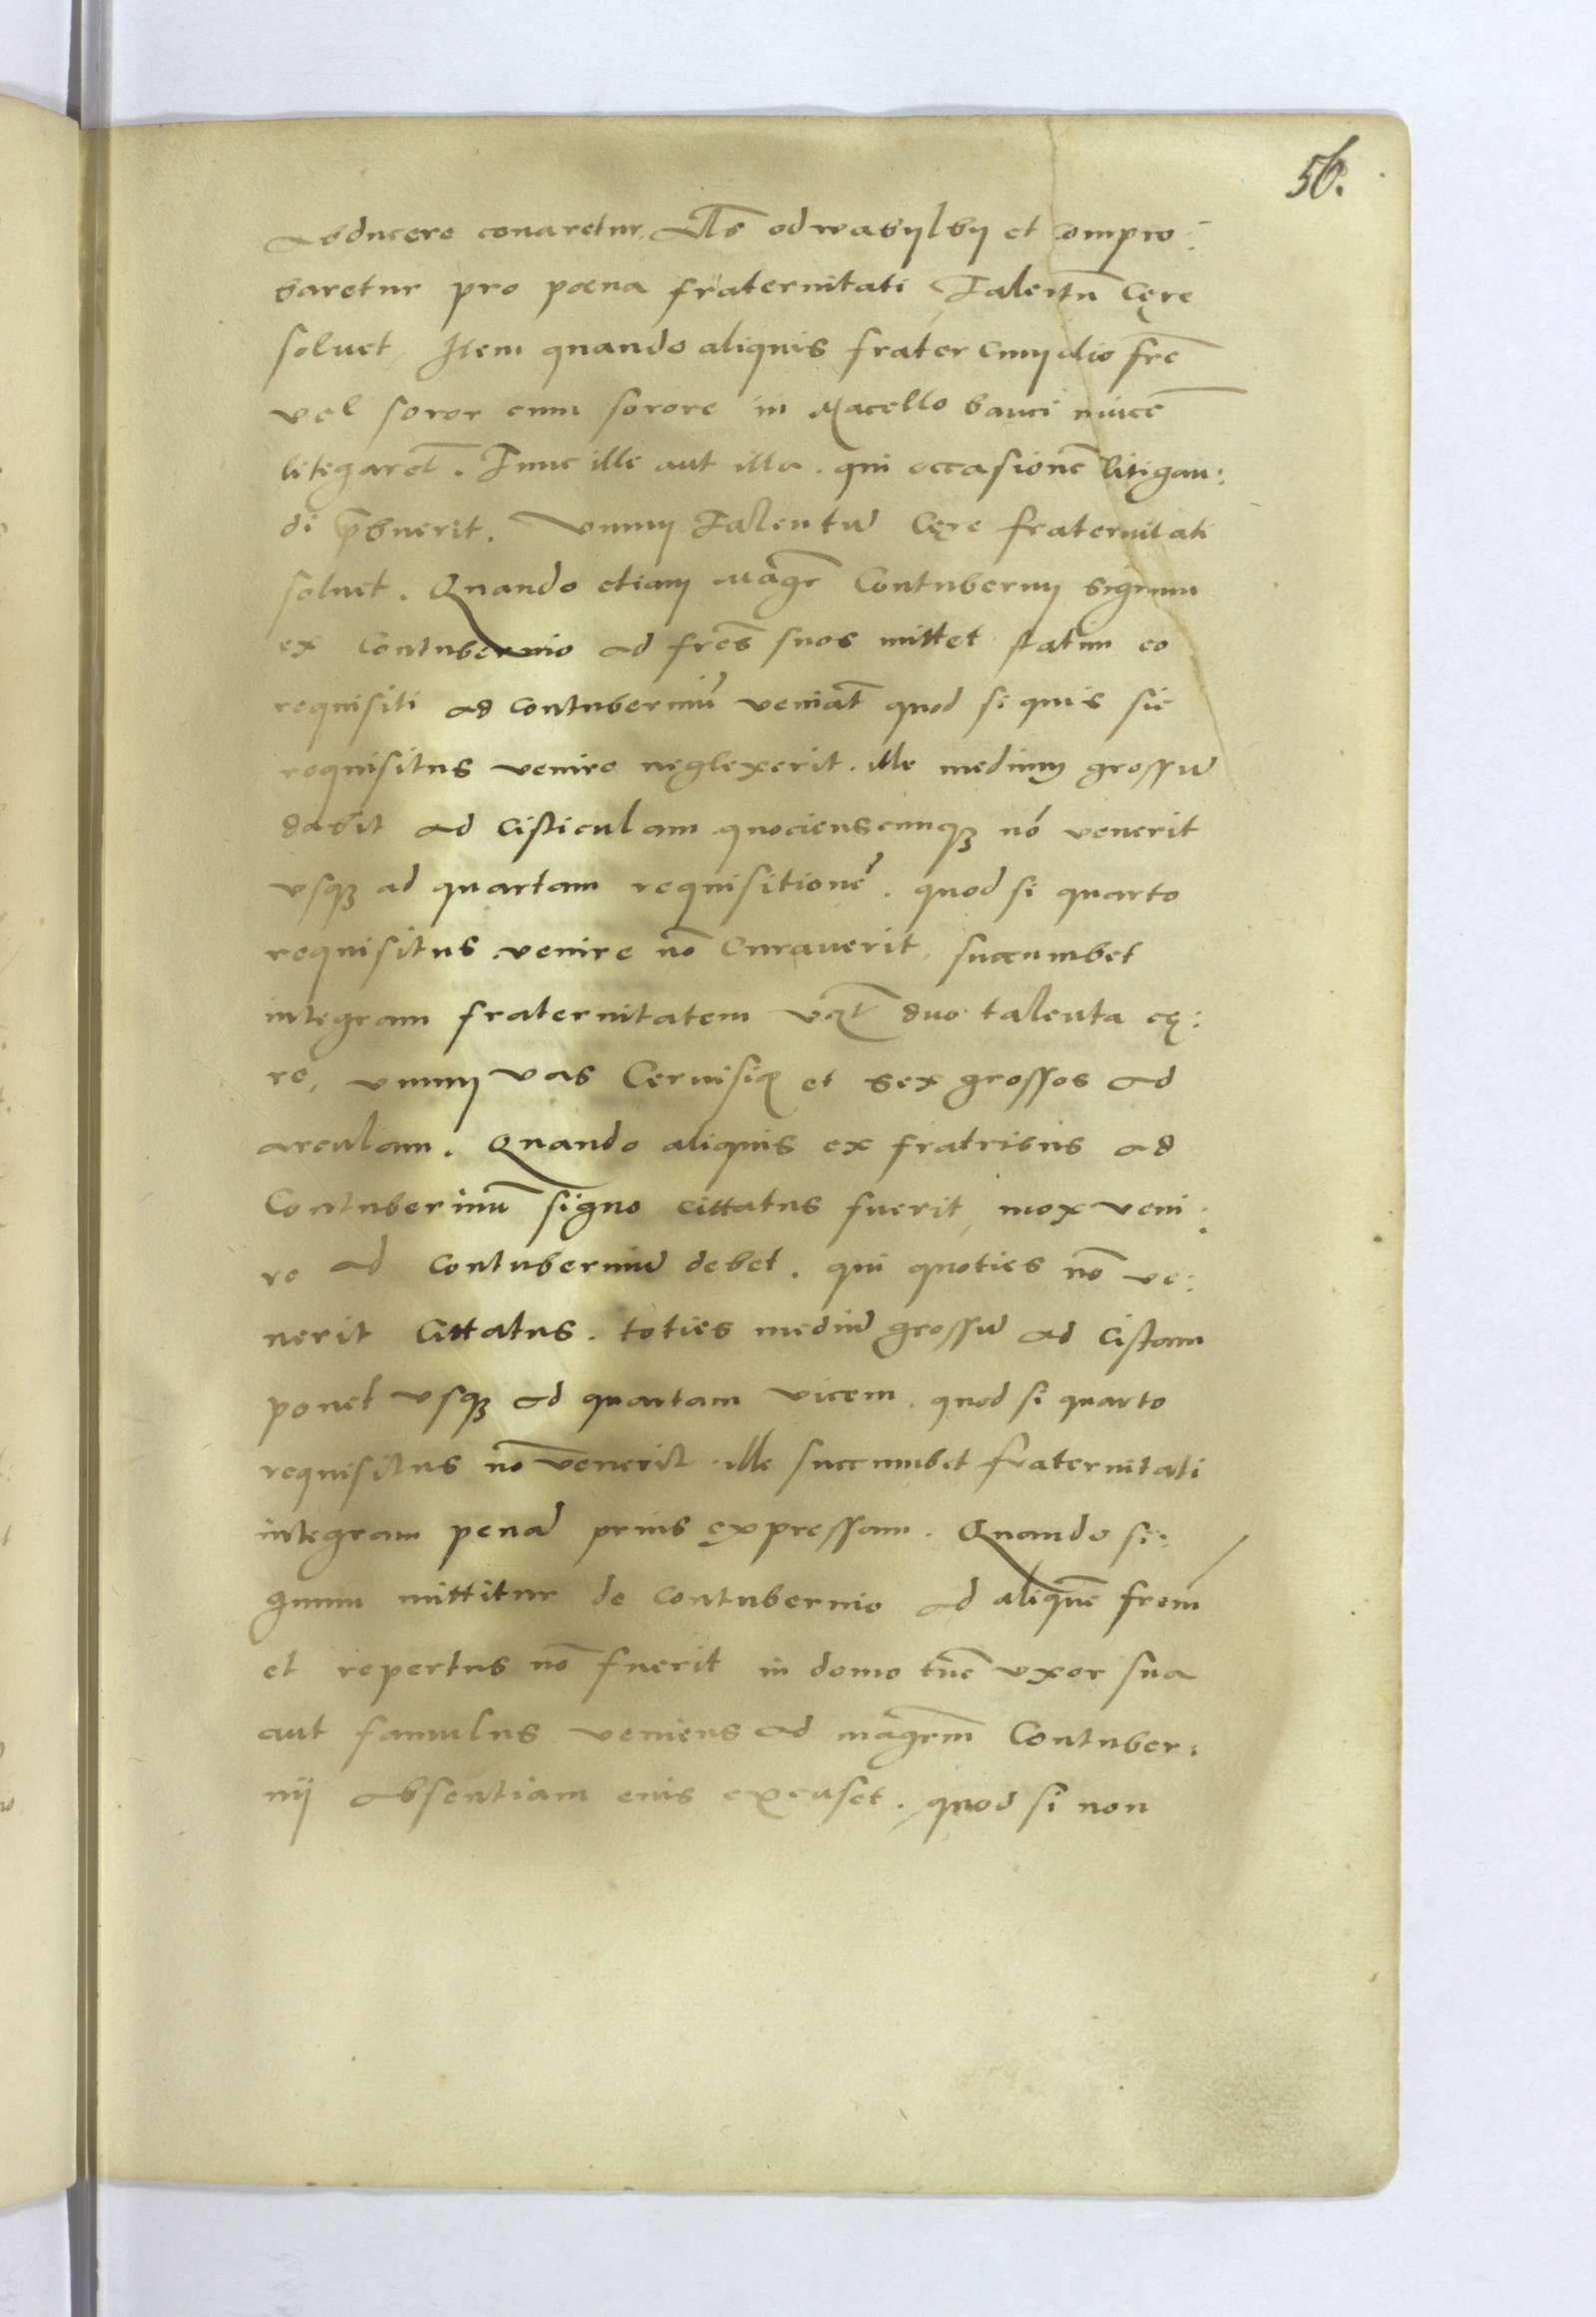 56.
abducere conaretur. Als odwabÿlbÿ et compro:
baretur pro poena fraternitati Talentũ Cęre
soluet, Item quando aliquis frater cum alio frē
vel soror cum sorore in Macello
litigaret̄. Tunc ille aut illa. qui occasionē litigan:
di p̄buerit. Vnum Talentū Cęre fraternitati
soluet. Quando etiam mag̃r Contubernij signum
ex Contubernio ad frēs suos mittet statim eo
requisiti ad Contuberniũ veniāt quod si quis sic
requisitus venire neglexerit. ille medium grossũ
dabit ad Cisticulam quocienscunqȝ nō venerit
vsqȝ ad quartam requisitionē. quod si quarto
requisitus venire nō Curauerit, succumbet
integram fraternitatem duo talenta cę:
re, vnum vas Ceruisię et sex grossos ad
arculam. Quando aliquis ex fratribus ad
Contuberniũ signo cittatus fuerit, mox veni:
re ad Contuberniũ debet. qui quoties nō ve:
nerit Cittatus. toties mediũ grossũ ad Cistam
ponet vsqȝ ad quartam vicem. quod si quarto
requisitus nō venerit ille succumbet fraternitati
integram penā prius expressam. Quando si:
gnum mittitur de Contubernio ad aliquē frem̄
et repertus nō fuerit in domo tūc vxor sua
aut famulus veniens ad mag̃rm Contuber:
nij absentiam eius excuset. quod si non